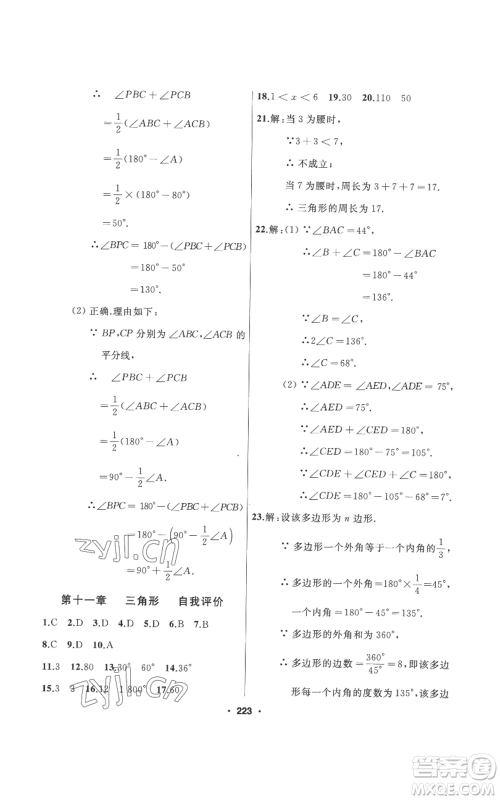 ∴ ∠PBC＋∠PCB
＝1/2(∠ABC＋∠ACB)
＝1/2(180°－∠A)
＝1/2×(180°－80°)
＝50°.
∴∠BPC＝180°－(∠PBC＋∠PCB)
＝180°－50°
＝130°.
(2) 正确.理由如下:
∵ BP,CP 分别为 ∠ABC,∠ACB 的
平分线,
∴ ∠PBC＋∠PCB
＝1/2(∠ABC＋∠ACB)
＝1/2(180°－∠A)
＝90°－1/2∠A.
∴∠BPC＝180°－(∠PBC＋∠PCB)
＝180°－(90°－1/2∠A)
＝90°＋1/2∠A
第十一章 三角形 自我评价
1.C 2.D 3.A 4.D 5.D 6.D 7.B
8.C 9.D 10.A
11.3 12.80 13.30° 60° 14.36°
15.3 3 16.12 1 800° 17.60
18.1＜x＜6 19.30 20.110 50
21.解:当 3 为腰时,
∵3＋3＜7,
∴ 不成立;
当 7 为腰时,周长为 3＋7＋7＝17.
∴ 三角形的周长为 17.
22.解:(1) ∵ ∠BAC＝44°,
∴∠B＋∠C＝180°－∠BAC
＝180°－44°
＝136°.
∵∠B＝∠C,
∴2∠C＝136°.
∴∠C＝68°.
(2) ∵∠ADE＝∠AED,∠ADE＝75°,
∴∠AED＝75°.
∵∠AED＋∠CED＝180°,
∴∠CED＝180°－75°＝105°.
∵∠CDE＋∠CED＋∠C＝180°,
∴∠CDE＝180°－105°－68°＝7°.
23.解:设该多边形为 n 边形.
∵ 多边形一个外角等于一个内角的 1/3,
∴ 多边形一个外角＝180°×1/4＝45°,
一个内角＝180°－45°＝135°.
∵ 多边形的外角和为 360°,
∴ 多边形的边数＝360°/45°＝8,即该多边
形每一个内角的度数为 135°,该多
· 223 ·
zyjl.cn
zyjl.cn
答案圈
MXQE.COM